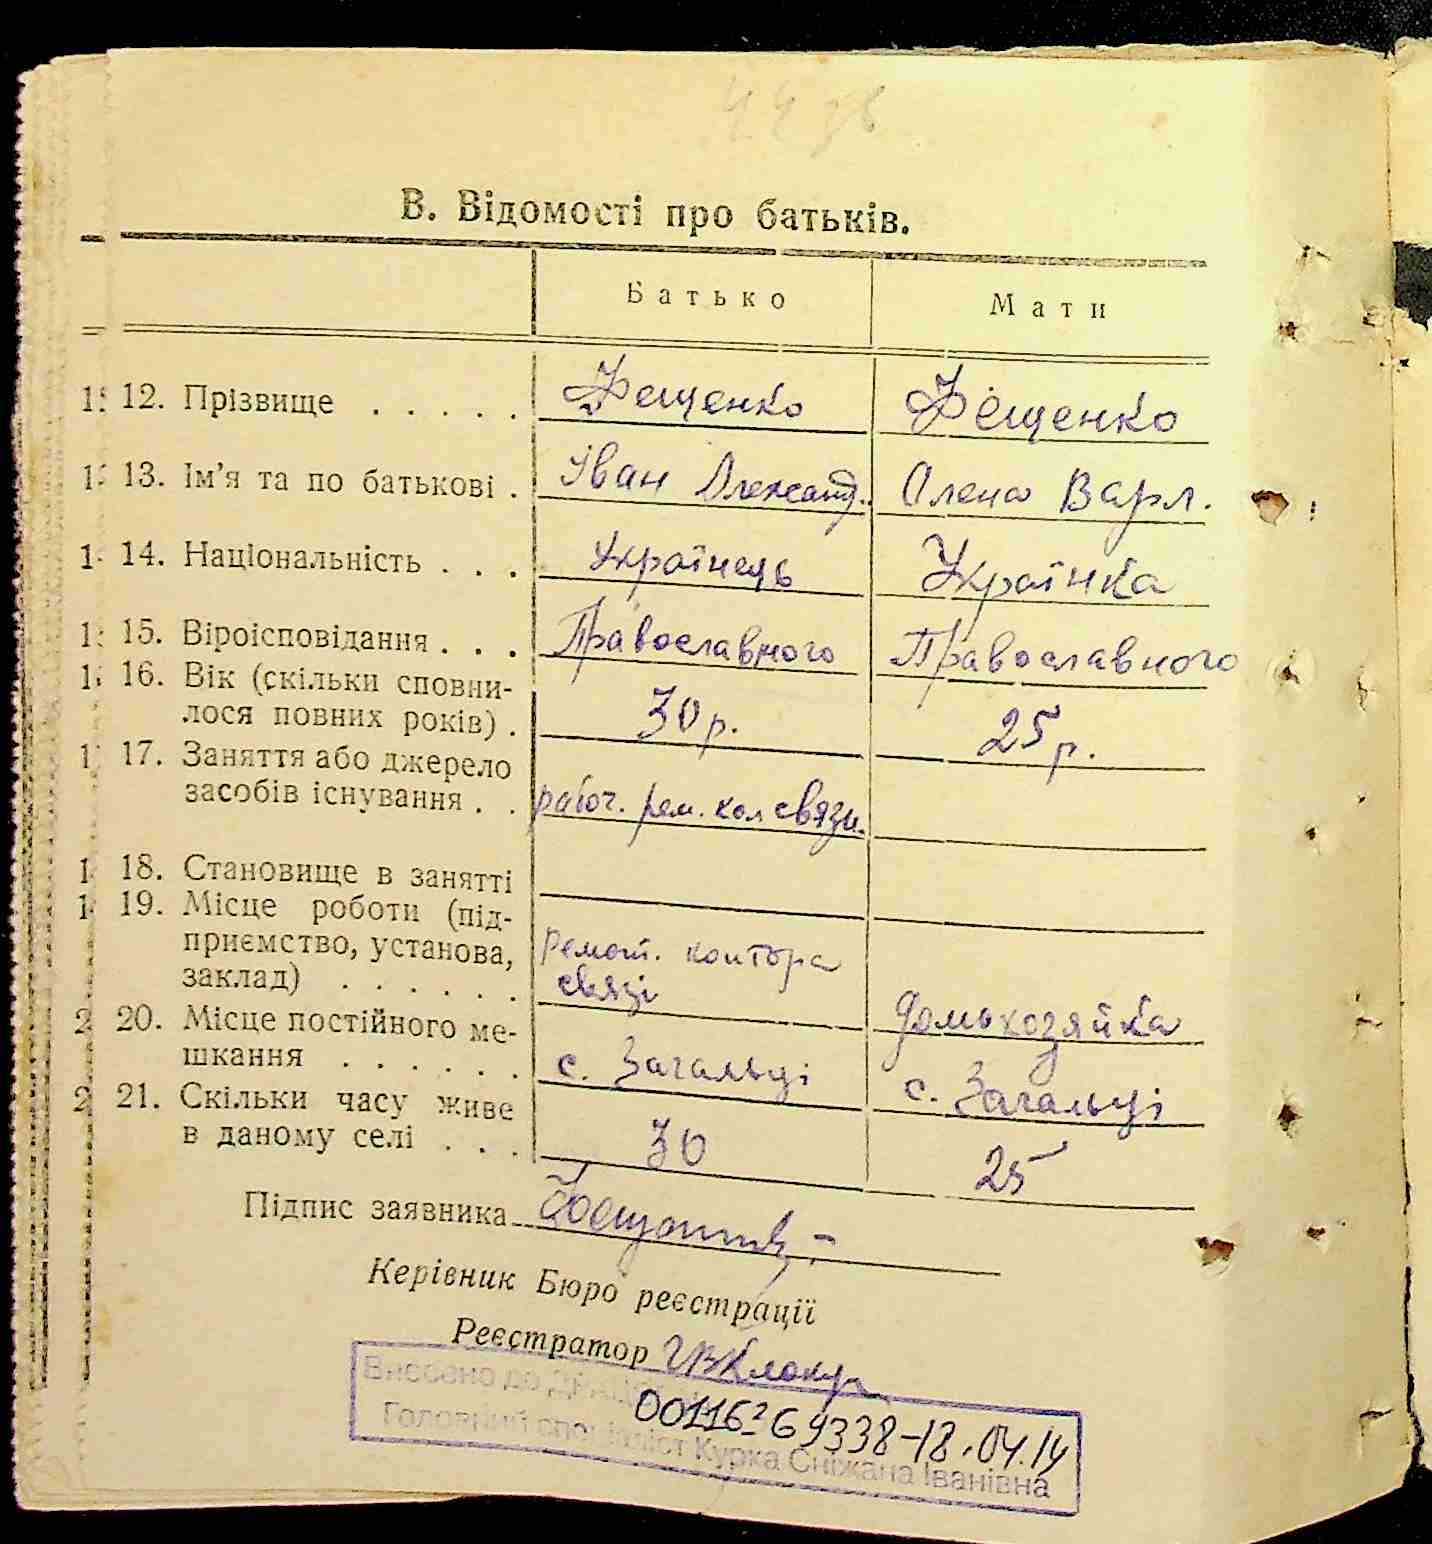 В. Відомості про батьків.
Батько Мати
12. Прізвище . . . . . Фещенко Фещенко
13. Ім'я та по батькові . Іван Олександ. Олена Варл.
14. Національність . . . Українець Українка
15. Віроісповідання . . . Православного Православного
16. Вік (скільки сповни-
лося повних років) . 30 р. 25 р.
17. Заняття або джерело
засобів існування . . рабоч. рем. кол связи.
18. Становище в занятті
19. Місце роботи (під-
приємство, установа, Ремонт. контора
заклад) . . . . . . связі домохозяйка
20. Місце постійного ме-
шкання . . . . . . с. Загальці с. Загальці
21. Скільки часу живе
в даному селі . . . 30 25
Підпис заявника
Керівник Бюро реєстрації
Реєстратор
Внесено до
Головний спеціаліст Курка Сніжана Іванівна
00116269338-18.04.14